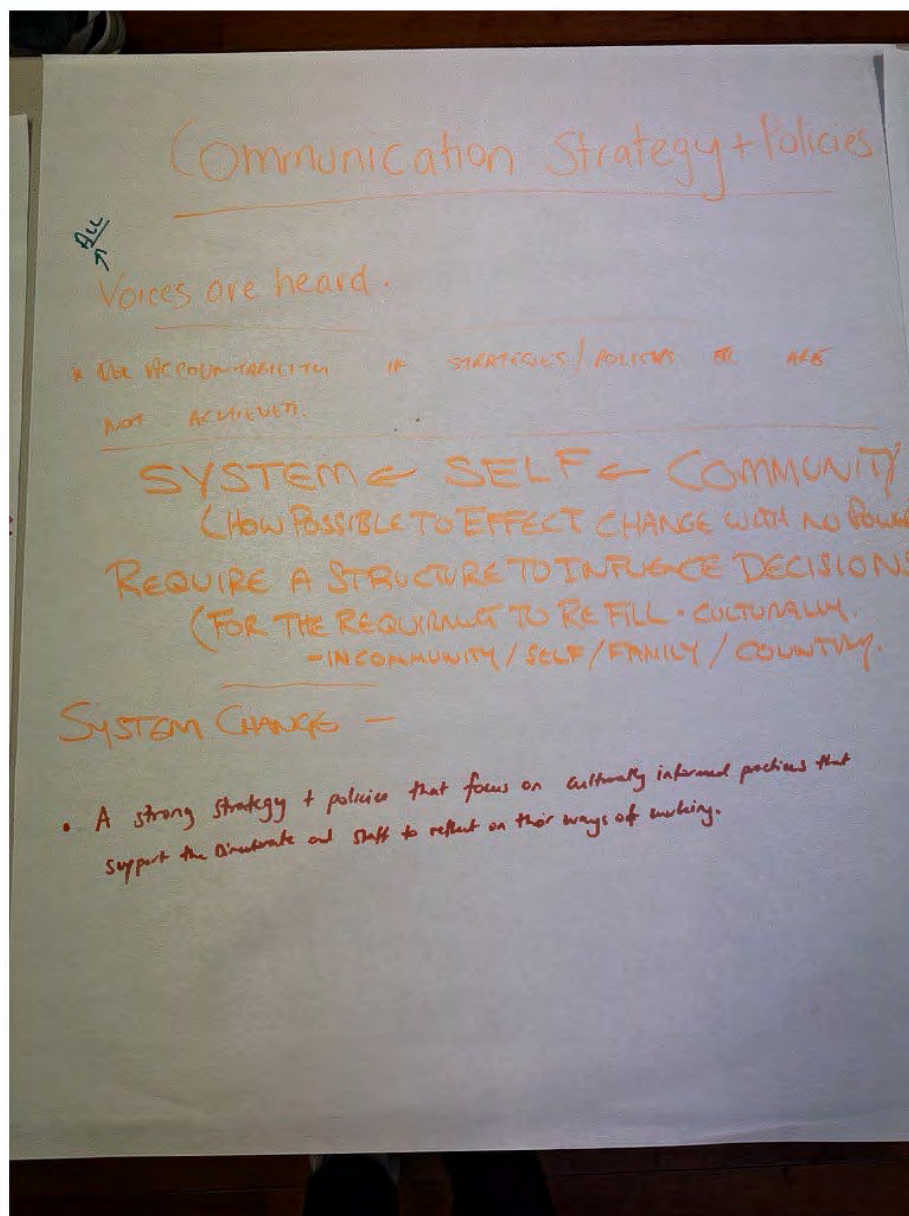 Communication Strategy + Policies
ALL
Voices are heard.
* ACCOUNTABILITY IF STRATEGIES/POLICIES ARE
NOT ACHIEVED.
SYSTEM ← SELF ← COMMUNITY
(HOW POSSIBLE TO EFFECT CHANGE WITH NO POWER
REQUIRE A STRUCTURE TO INFLUENCE DECISIONS
(FOR THE TO BE FILL · CULTURALLY.
- IN COMMUNITY / SELF / FAMILY / COUNTRY.
SYSTEM CHANGE -
• A strong strategy + policies that focus on culturally informed practices that
support the Directorate and staff to reflect on their ways of working.